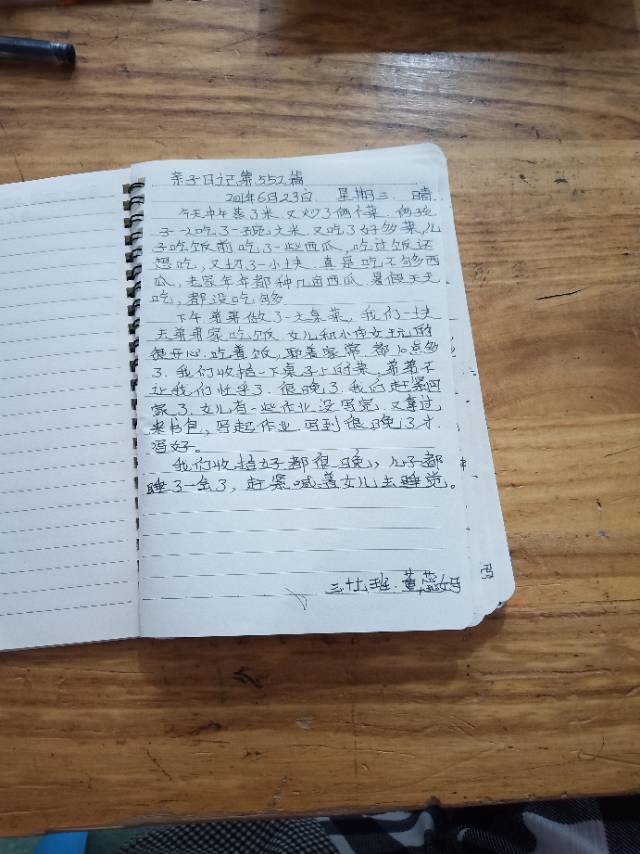 亲子日记第552篇
2021年6月23日 星期三 晴
今天中午蒸了米，又炒了俩个菜，俩孩
子一人吃了一碗大米，又吃了好多菜，儿
子吃饭前吃了一些西瓜，吃过饭还
想吃，又切了一小块，真是吃不够西
瓜，老家年年都种几亩西瓜，暑假天天
吃，都没吃够
下午弟弟做了一大桌菜，我们一块
去弟弟家吃饭，女儿和小侄女玩的
很开心，吃着饭，聊着家常，都10点多
了，我们收拾一下桌子上的菜，弟弟不
让我们忙乎了，很晚了，我们赶紧回
家了，女儿有一些作业没写完，又拿过
来书包，写起作业，写到很晚了才
写好。
我们收拾好都很晚了，儿子都
睡了一会了，赶紧喊着女儿去睡觉。
班 董蕊妈